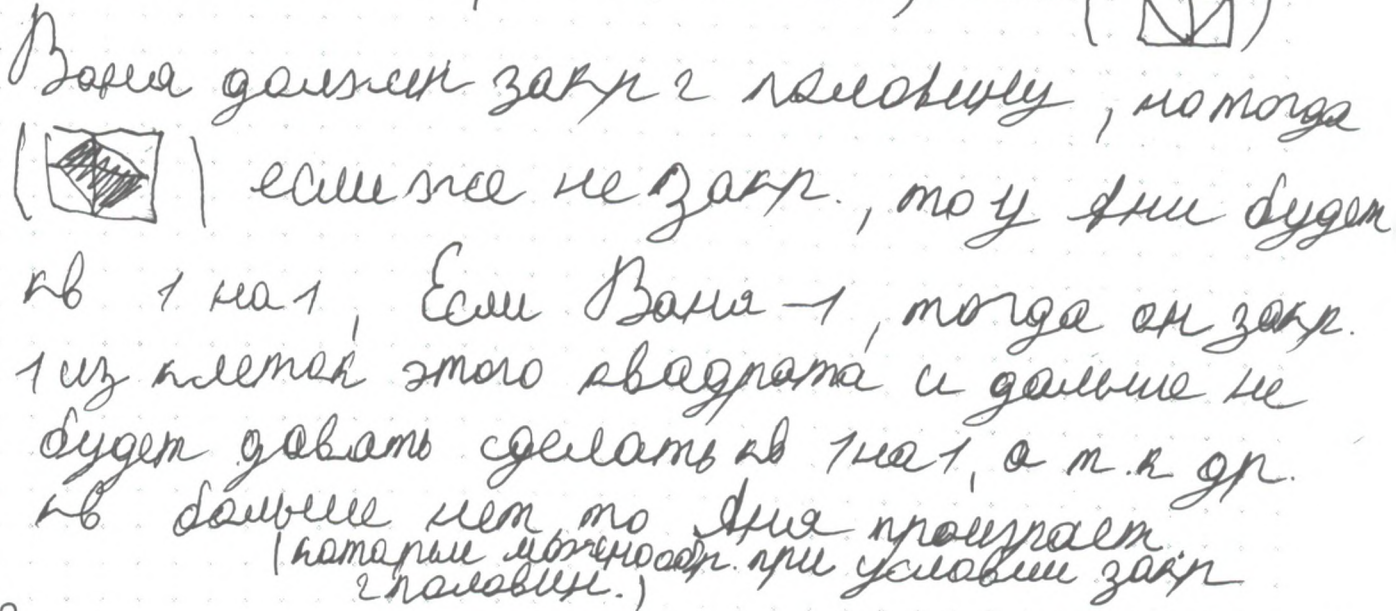 Ваня должен закр 2 половину, но тогда
( ) если же не закр., то у Ани будет
кв 1 на 1, Если Ваня - 1, тогда он закр.
1 из клеток этого квадрата и дальше не
будет давать сделать кв 1 на 1, а т.к др.
кв больше нет, то Аня проиграет
(которые можно обр. при условии закр
2 половин.)